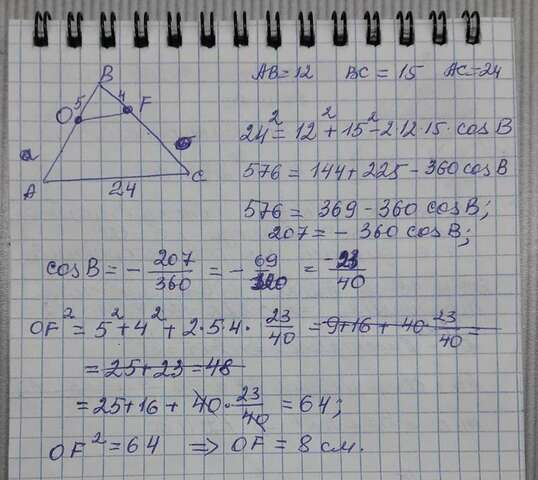 AB=12 BC=15 AC=24
24² = 12² + 15² - 2·12·15·cosB
576 = 144 + 225 - 360cosB
576 = 369 - 360 cosB;
207 = - 360 cosB;
A
O
5
B
4
F
24
C
cosB = - 207/360 = - 69/120 = - 23/40
OF² = 5² + 4² + 2·5·4· 23/40 = 9+16 + 40· 23/40 =
= 25+23=48
= 25+16 + 40· 23/40 = 64;
OF² = 64 ⇒ OF = 8 см.